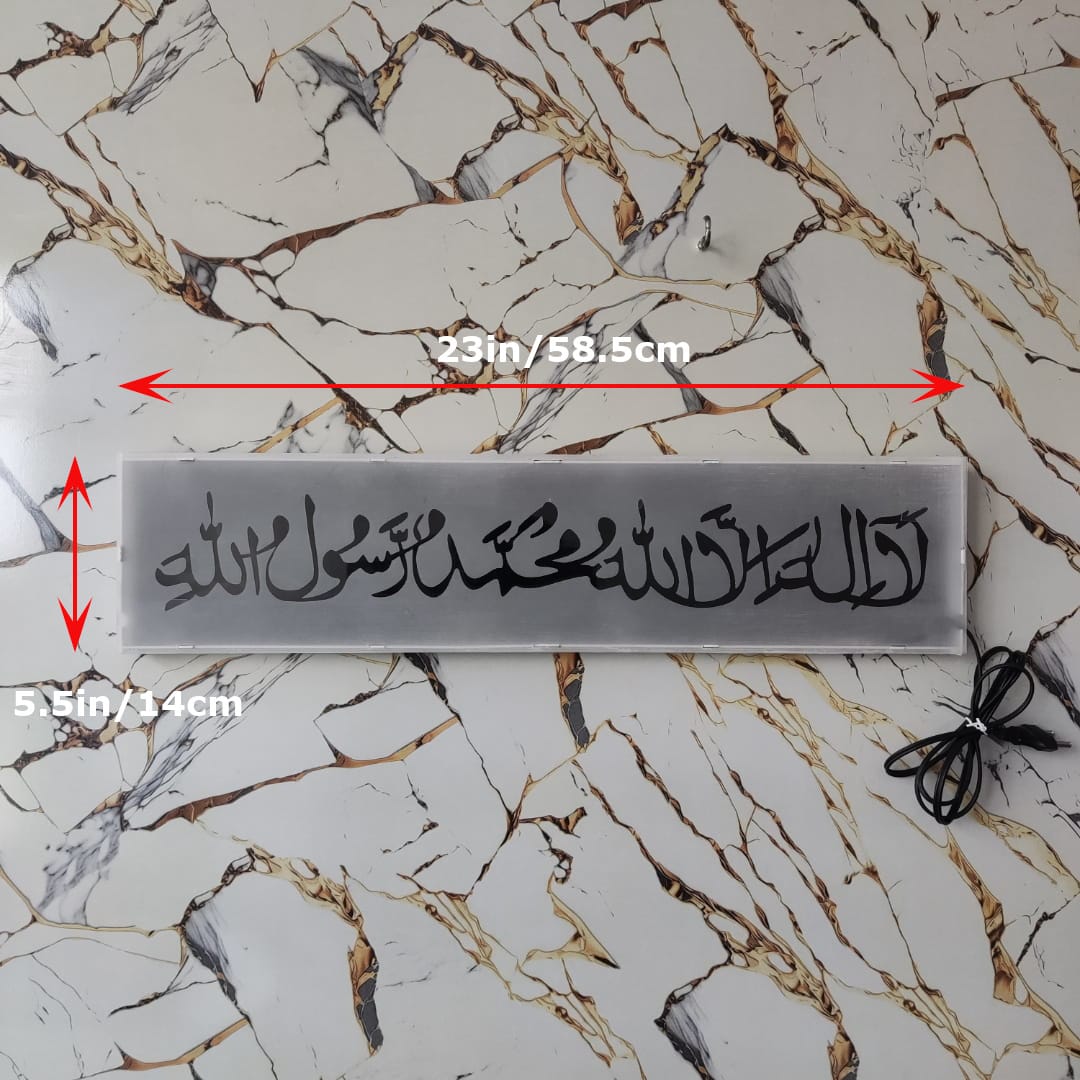 23in/58.5cm
لَا إِلٰهَ إِلَّا اللّٰهُ مُحَمَّدٌ رَّسُولُ اللّٰهِ
5.5in/14cm